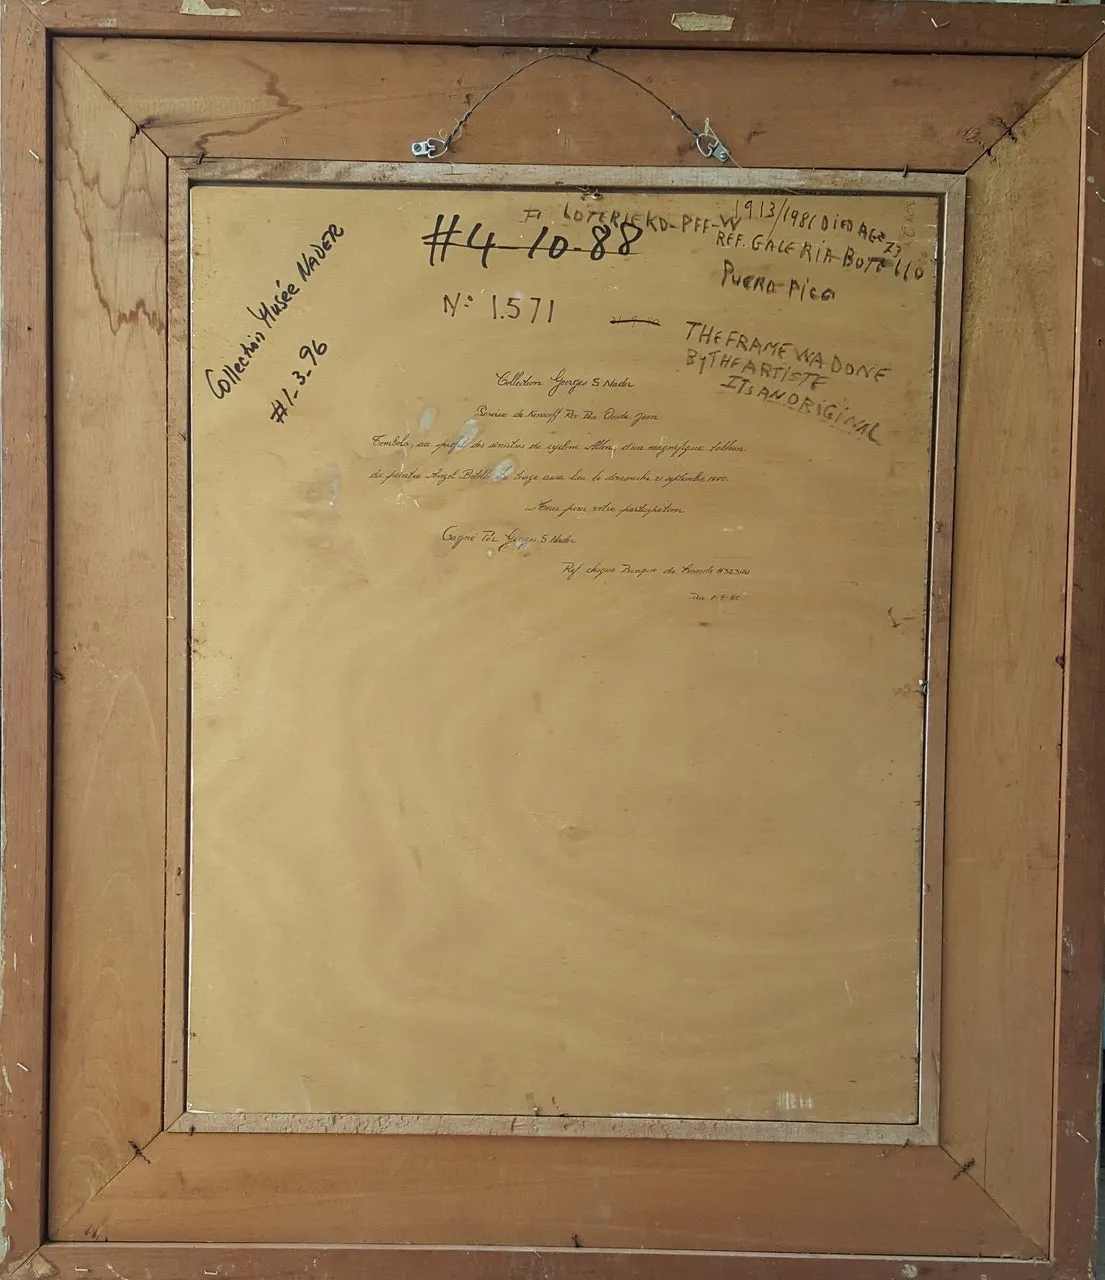 Collection Musée NADER
#1-3-96
FI LOTERIE KD-PFF-W
#4-10-88
N° 1.571
1913/1986 DIED AGE 73
REF. GALERIA BOTELLO
PUERO-RICO
THE FRAME WA DONE
By THE ARTISTE
ITS AN ORIGINAL
Collection Georges S Nader
Tombola, au profit des sinistres du cyclone Allen, d'un magnifique tableau
du peintre Angel Botello Le tirage aura lieu le dimanche 21 septembre 1980.
Merci pour votre participation
Gagné Par Georges S Nader
Ref. cheque Banque du Canada
Du 1-9-80